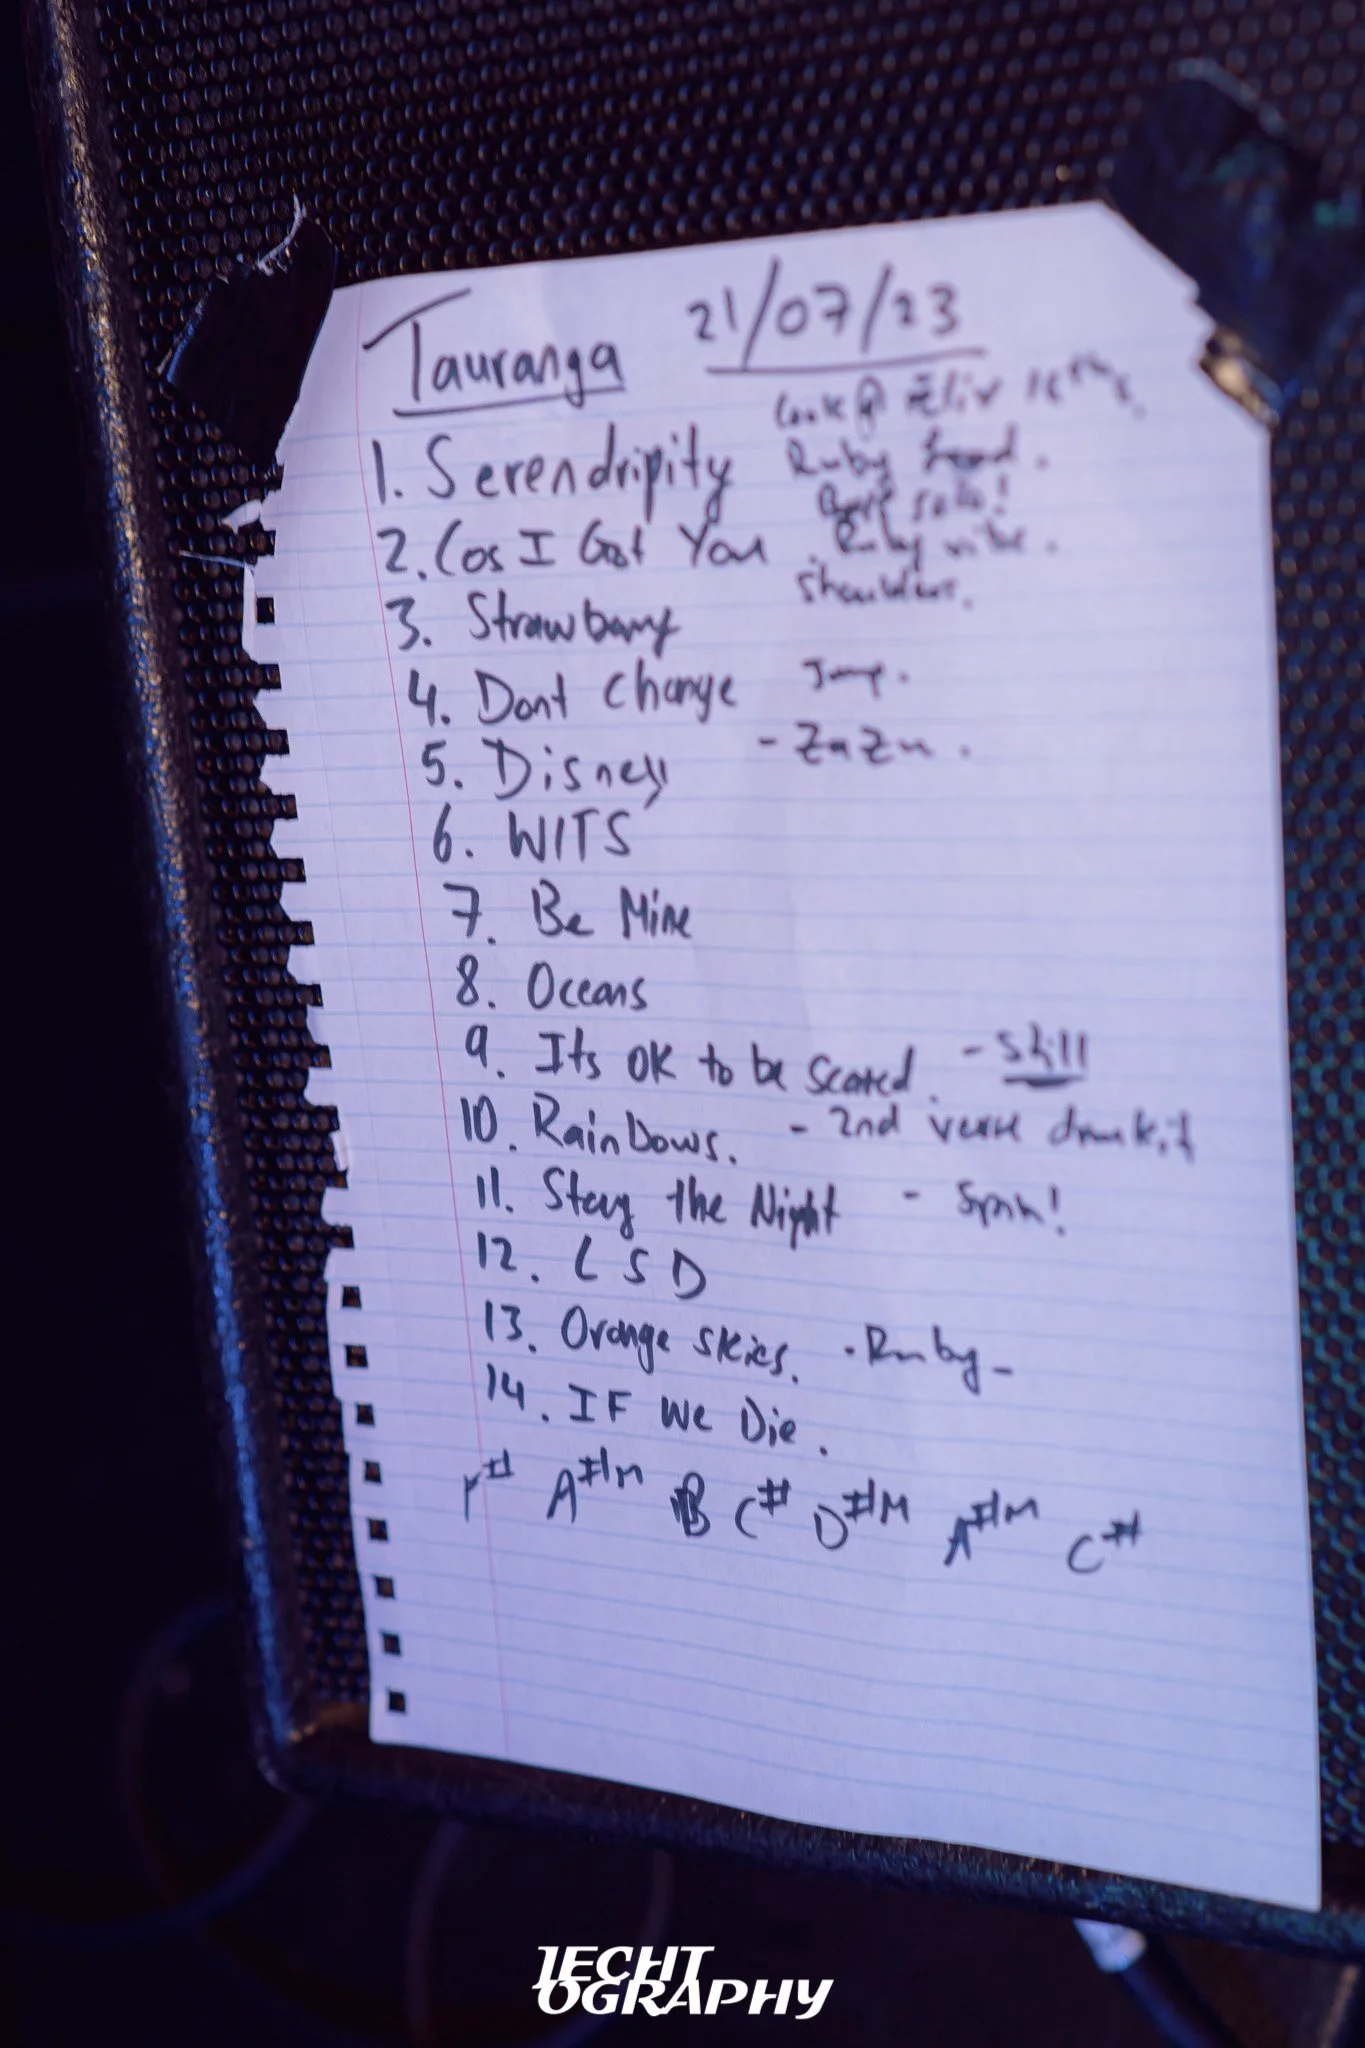 Tauranga 21/07/23
Look @
1. Serendripity Ruby
solo!
2. Cos I Got You . Ruby vibe.
shoulders.
3. Strawberry
4. Dont Change Jump.
5. Disney - ZaZu.
6. WITS
7. Be Mine
8. Oceans
9. Its OK to be Scared. - Still
10. Rainbows. - 2nd verse drumkit
11. Stay the Night - Spin!
12. LSD
13. Orange Skies. - Ruby -
14. IF We Die.
F# A#m B C# D#m A#m C#
IECHT
OGRAPHY